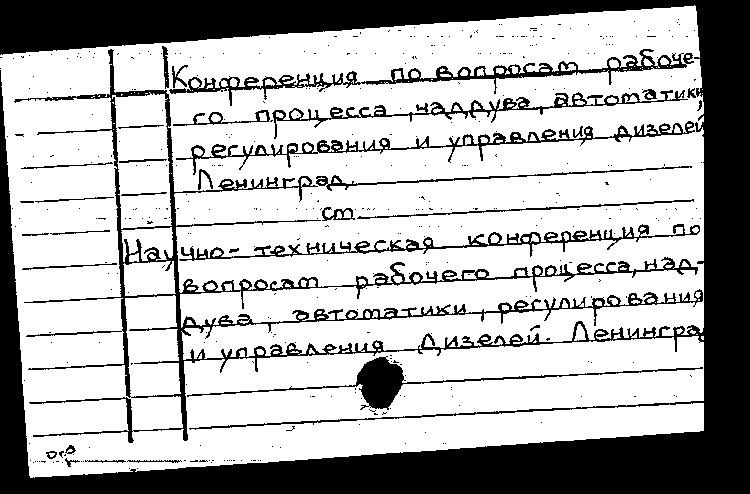 Конференция по вопросам рабоче-
го процесса, наддува, автоматики,
регулирования и управления дизелей
Ленинград.
ст.
Научно-техническая конференция по
вопросам рабочего процесса, над-
дува, автоматики, регулирования
и управления дизелей. Ленинград